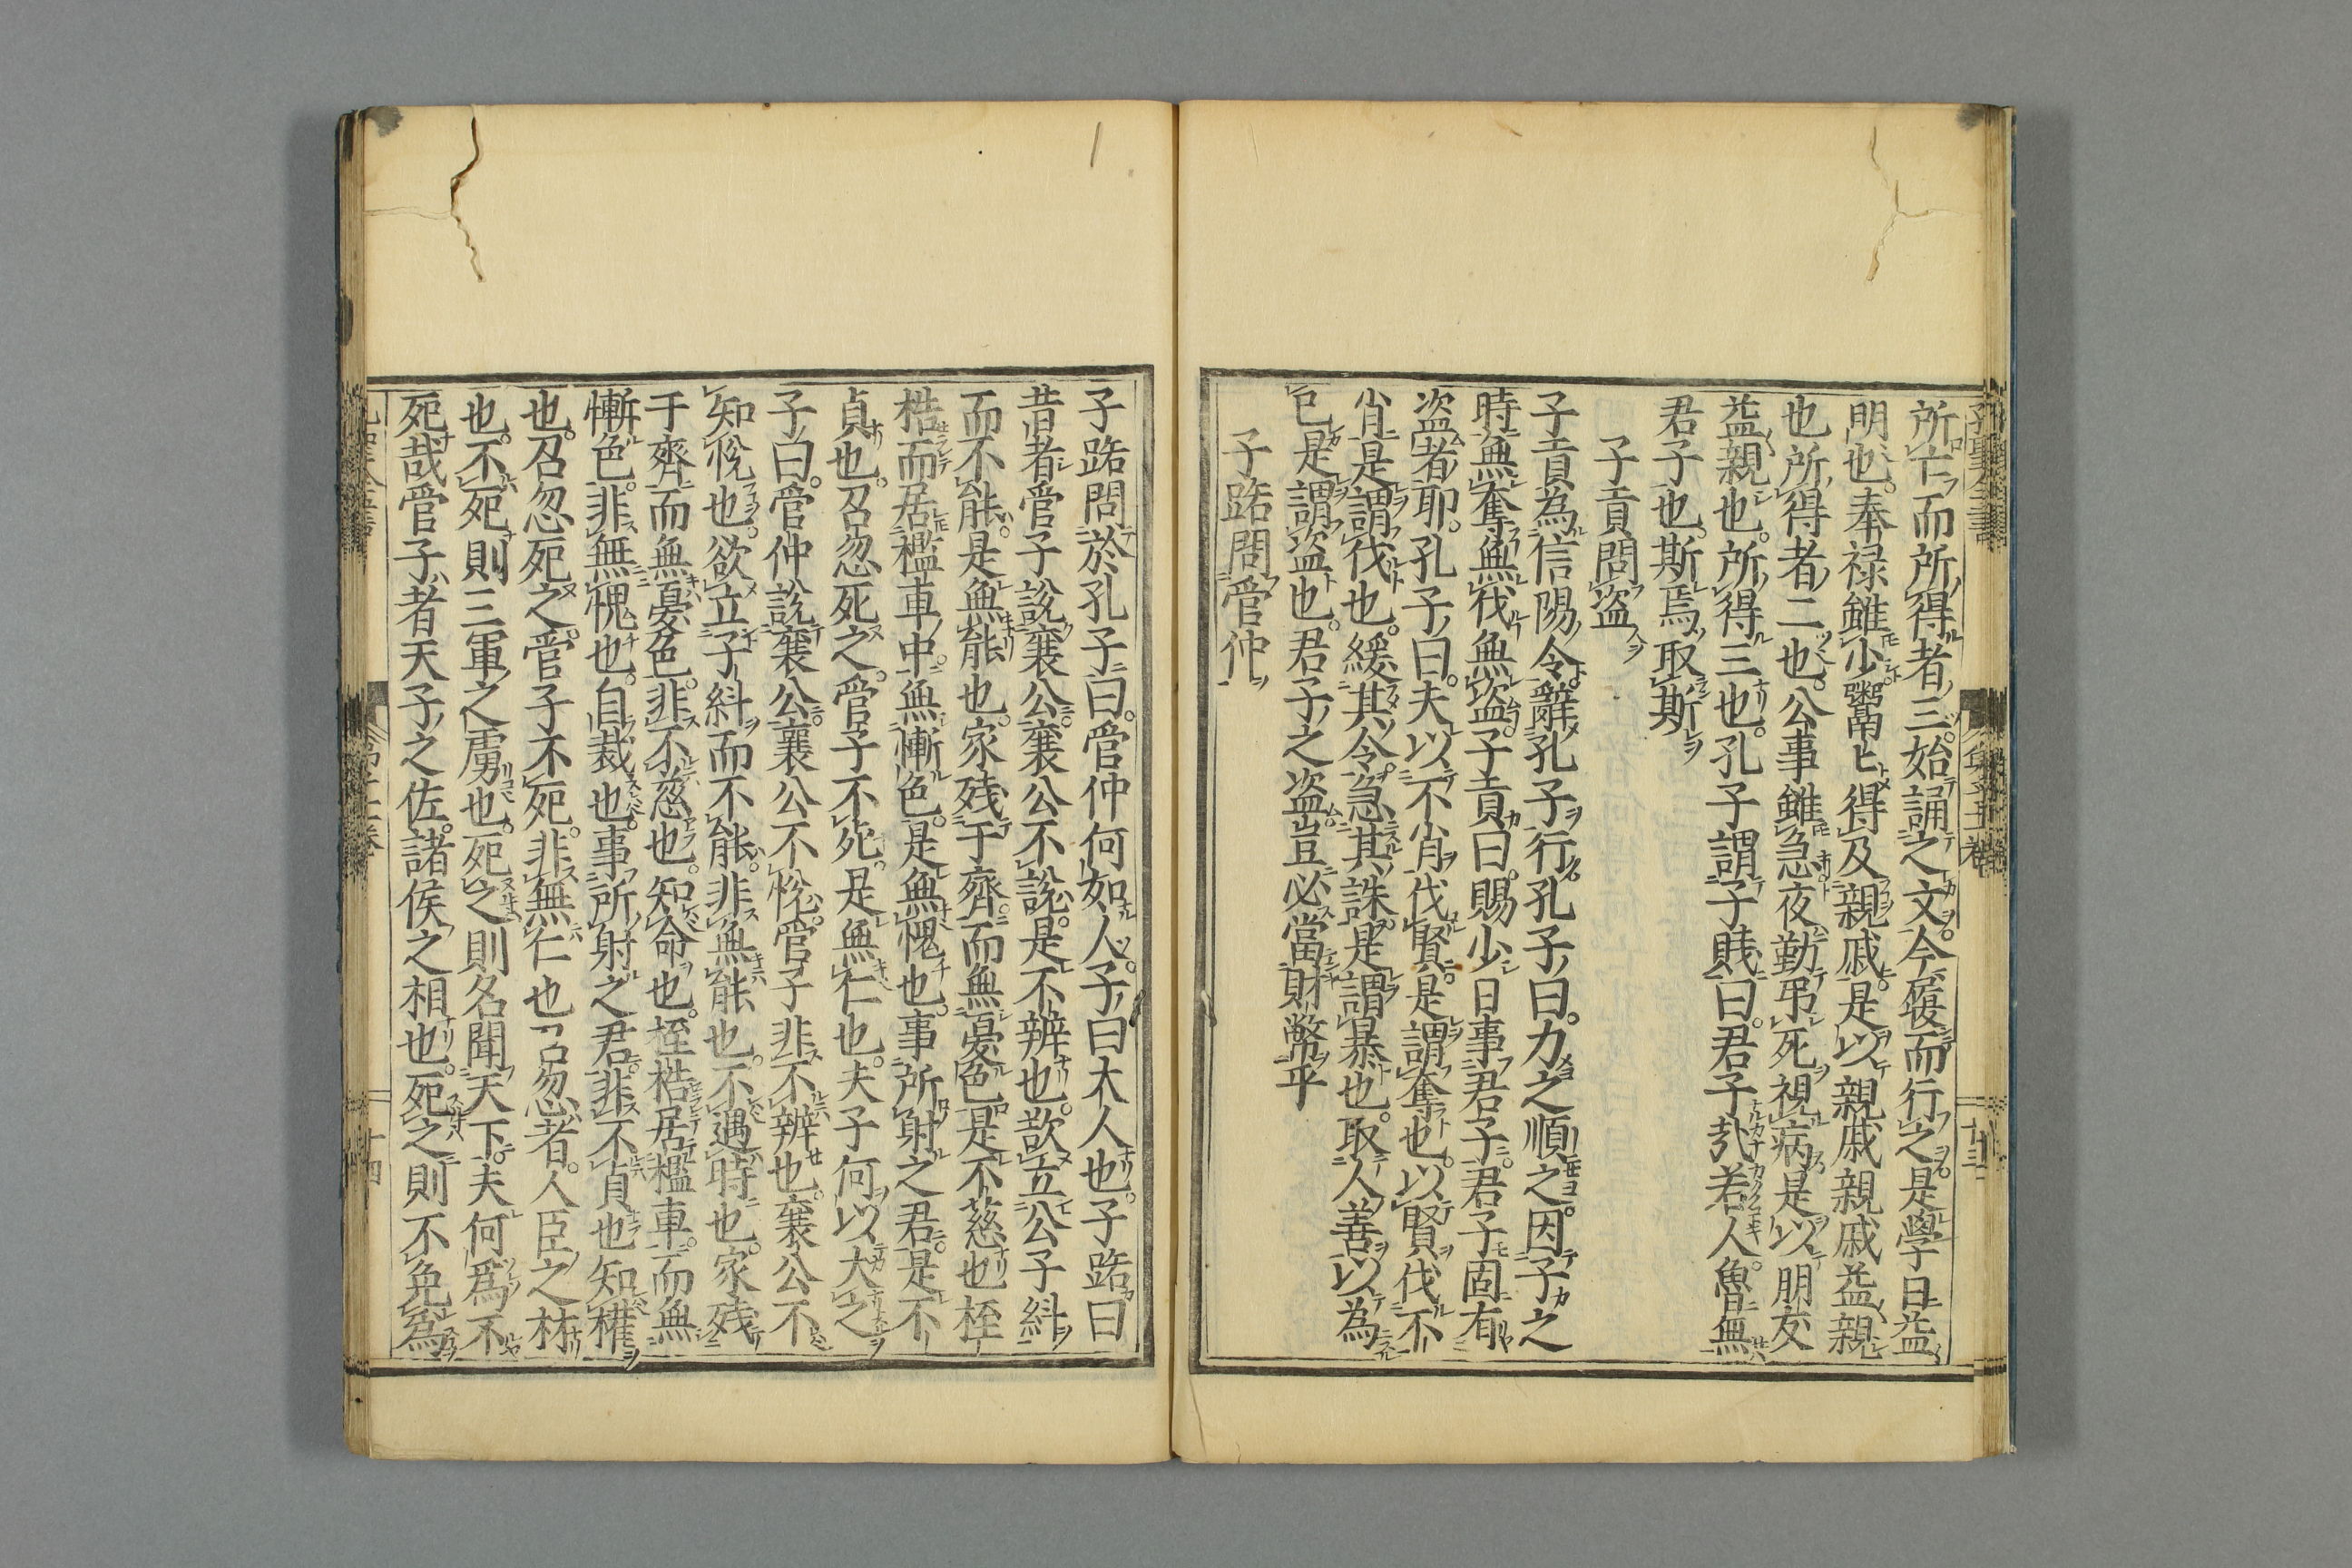 所亡而所得者三始誦之文今履而行之是學日益
明也奉禄雖少鬻〻得及親戚是以親戚親戚益親
也所得者二也公事雖急夜勤弔死視病是以朋友
益親也所得三也孔子謂子賤曰君子㢤若人魯無
君子也斯焉取斯
子貢問盗
子貢為信陽令辭孔子行孔子曰力之順之因子之
時無奪無伐無盗子貢曰賜少日事君子君子固有
盗者耶孔子曰夫以不肖伐賢是謂奪也以賢伐不
肖是謂伐也緩其令急其誅是謂暴也取人善以為
已是謂盗也君子之盗豈必當財幣乎
子路問管仲
子路問於孔子曰管仲何如人子曰大人也子路曰
昔者管子說襄公襄公不說是不辨也欲立公子糾
而不能是無能也家残于齊而無憂色是不慈也桎
梏而居檻車中無慚色是無愧也事所射之君是不
貞也召忽死之管子不死是無仁也夫子何以大之
子曰管仲說襄公襄公不悅管子非不辨也襄公不
知悅也欲立子糾而不能非無能也不遇時也家残
于齊而無憂色非不慈也知命也桎梏居檻車而無
慚色非無愧也自裁也事所射之君非不貞也知權
也召忽死之管子不死非無仁也召忽者人臣之材
也不死則三軍之虜也死之則名聞天下夫何爲不
死哉管子者天子之佐諸侯之相也死之則不免爲